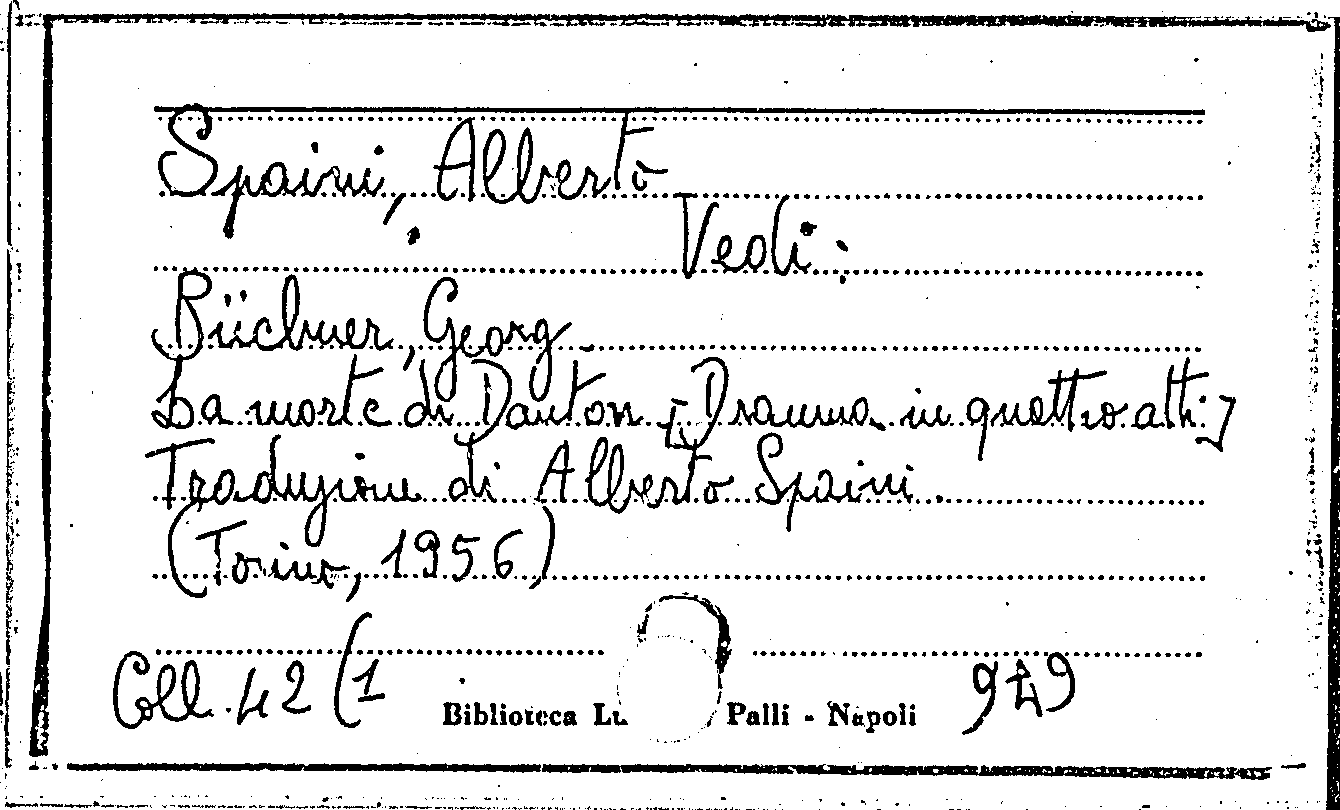 Spaini, Alberto
Vedi:
Büchner, Georg.
La morte di Danton [Dramma in quattro atti]
Traduzione di Alberto Spaini.
(Torino, 1956)
Coll. 42 (1
Biblioteca Lu Palli - Napoli
949